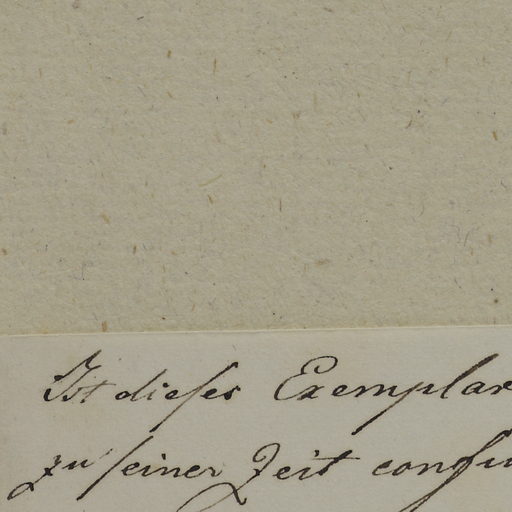 Ist dieſes Exemplar
zu ſeiner Zeit